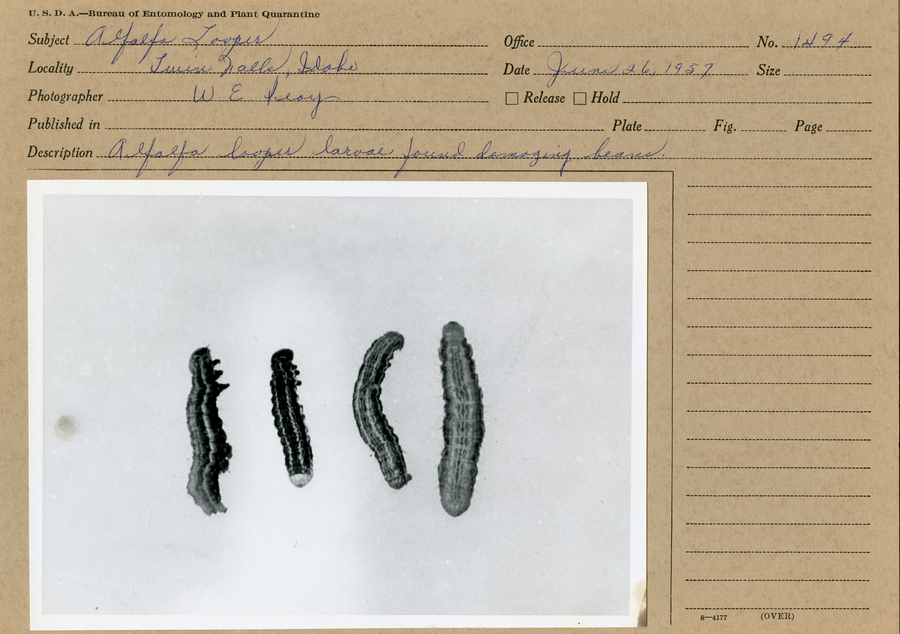 U. S. D. A.—Bureau of Entomology and Plant Quarantine
Subject Alfalfa Looper Office No. 1494
Locality Twin Falls, Idaho Date June 26, 1957 Size
Photographer W E Peay Release Hold
Published in Plate Fig. Page
Description Alfalfa looper larvae found damaging beans.
8—4177 (OVER)